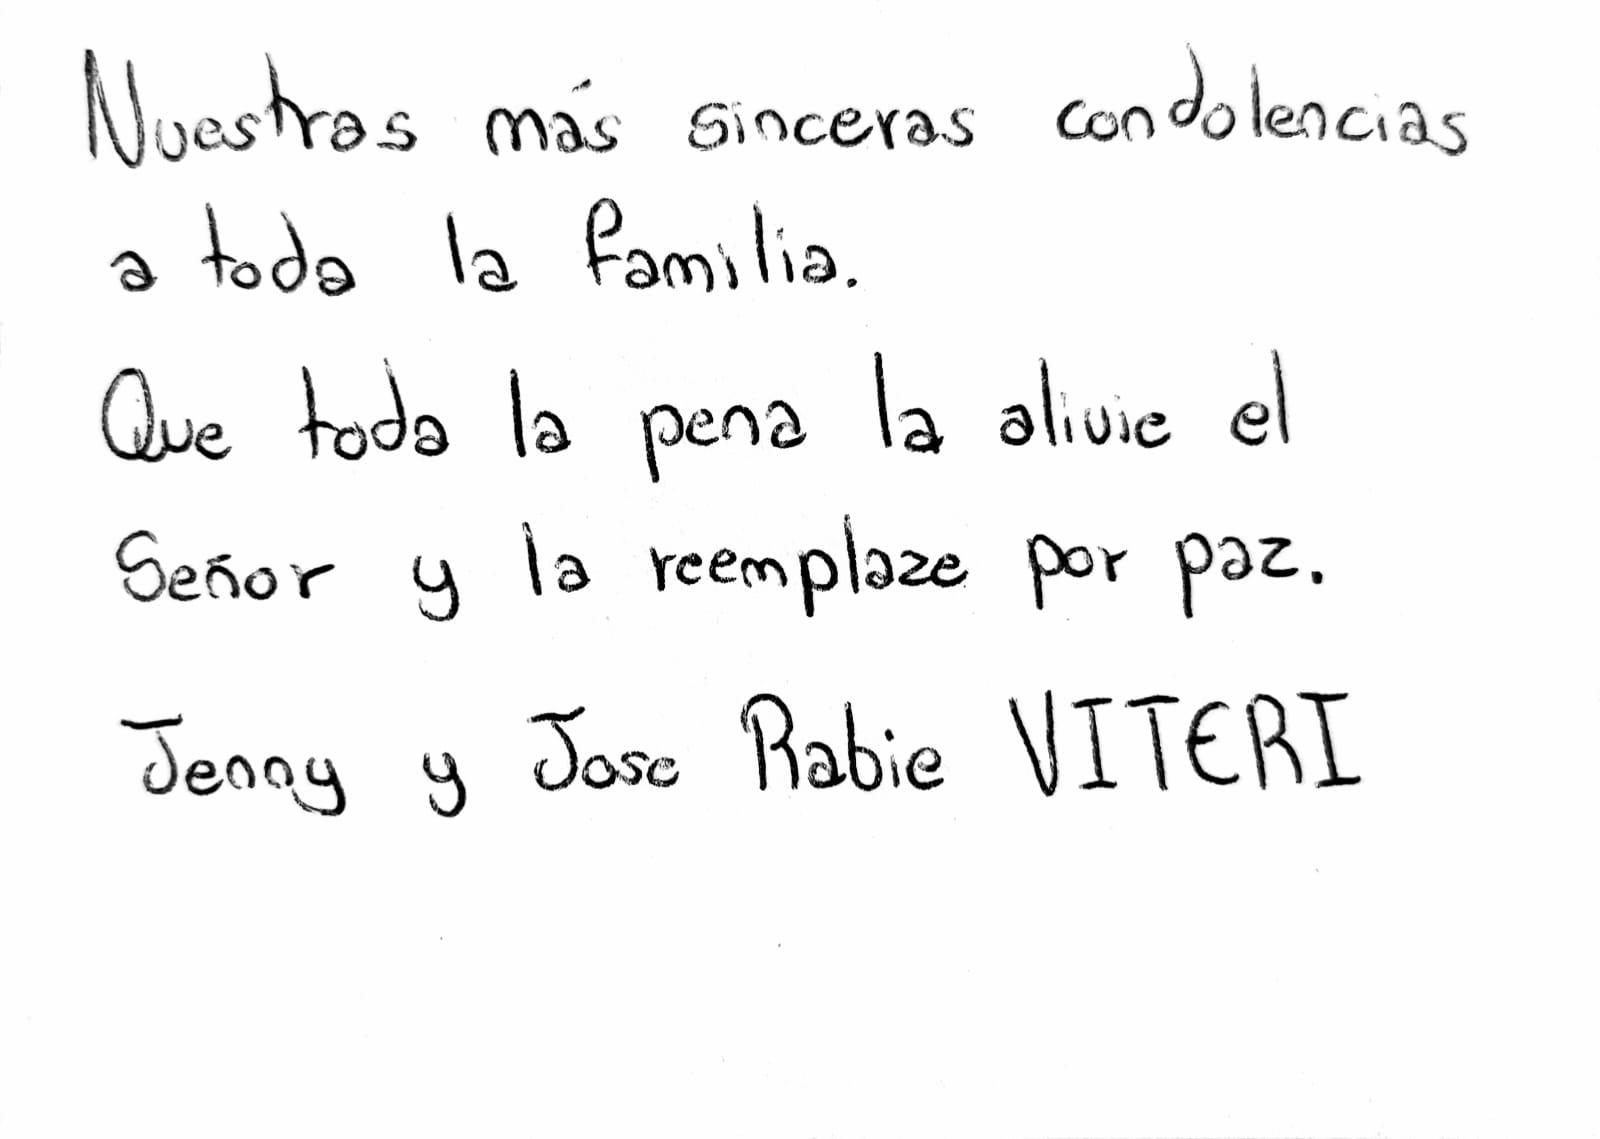 Nuestras más sinceras condolencias
a toda la familia.
Que toda la pena la alivie el
Señor y la reemplaze por paz.
Jenny y Jose Rabie VITERI